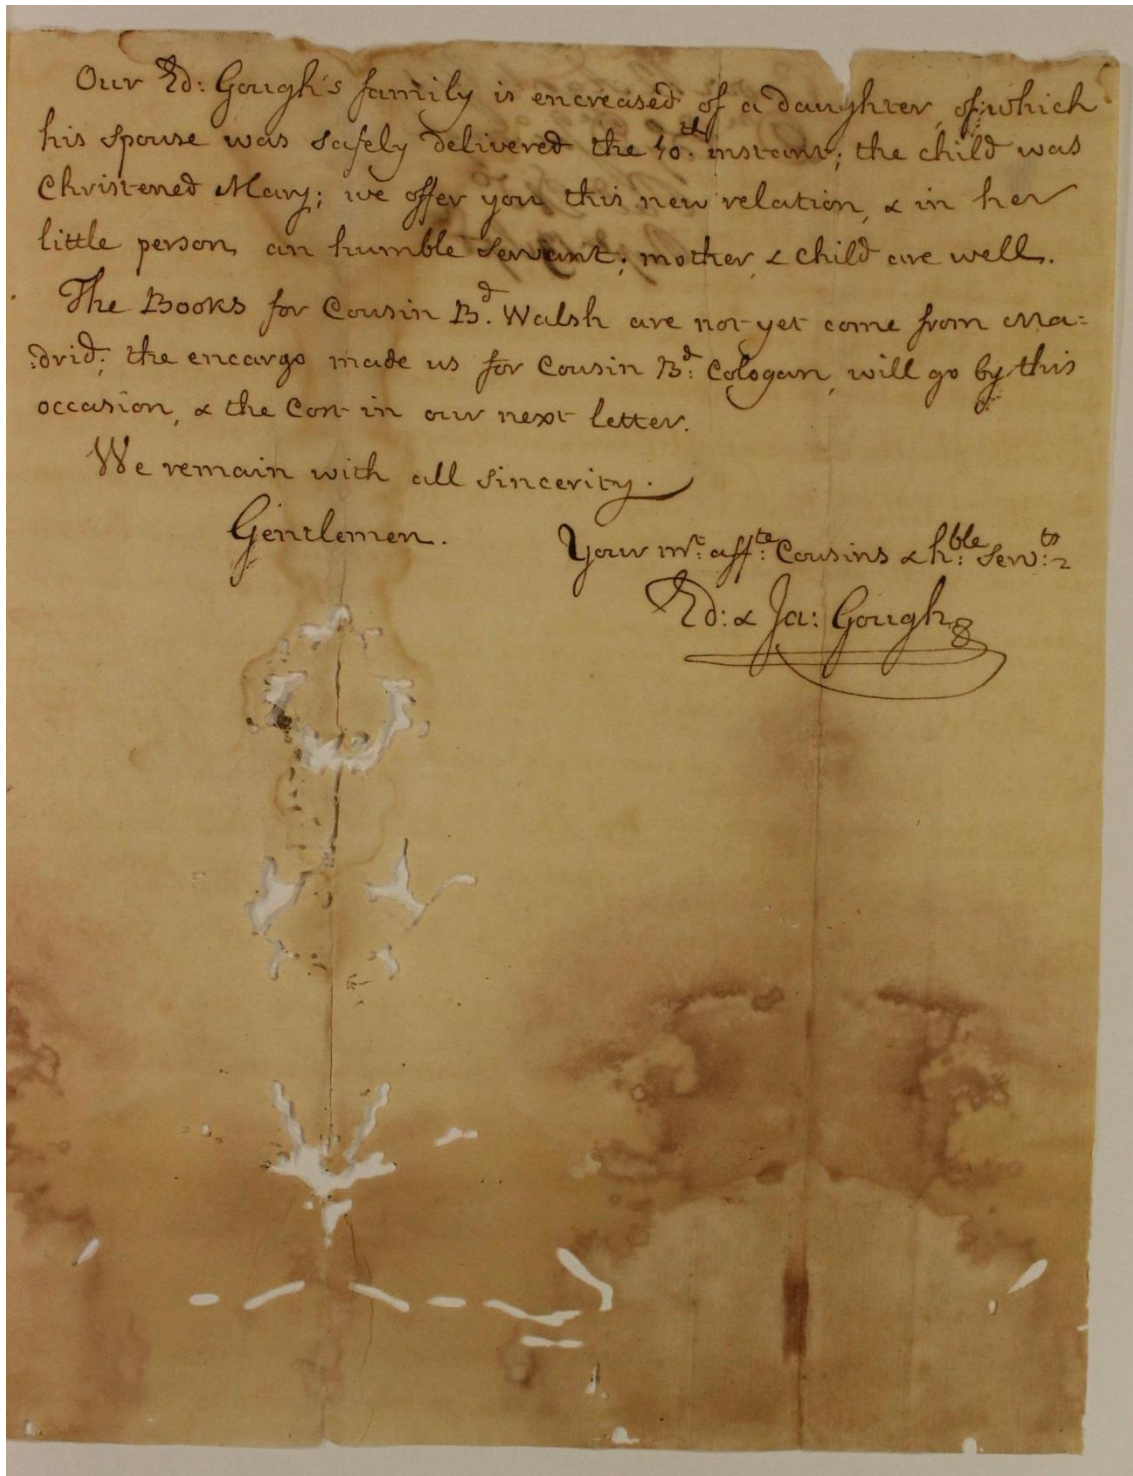 Our Ed: Gough's family is encreased of a daughter, of which
his spouse was safely delivered the 10.th instant; the child was
Christened Mary; we offer you this new relation, & in her
little person an humble servant; mother, & child are well.
The Books for Cousin B.d Walsh are not yet come from Ma=
:drid; the encargo made us for Cousin B:d Cologan, will go by this
occasion, & the Cost in our next letter.
We remain with all sincerity.
Gentlemen.
Your m:t aff:te Cousins & h:ble Serv:ts
Ed: & Ja: Gough